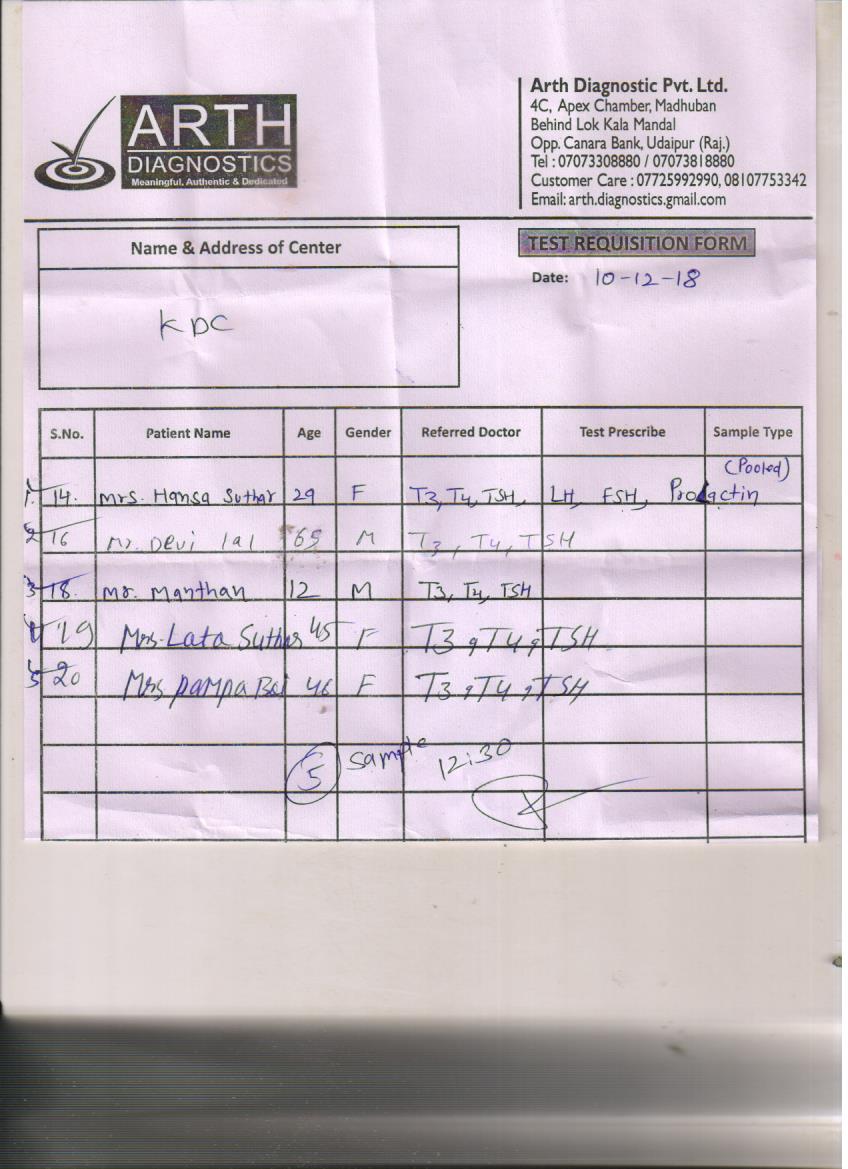 ARTH
DIAGNOSTICS
Meaningful, Authentic & Dedicated
Arth Diagnostic Pvt. Ltd.
4C, Apex Chamber, Madhuban
Behind Lok Kala Mandal
Opp. Canara Bank, Udaipur (Raj.)
Tel : 07073308880 / 07073818880
Customer Care : 07725992990, 08107753342
Email: arth.diagnostics.gmail.com
Name & Address of Center
KDC
TEST REQUISITION FORM
Date: 10-12-18
S.No. Patient Name Age Gender Referred Doctor Test Prescribe Sample Type
(Pooled)
1. 14. Mrs. Hansa Suthar 29 F T3, T4, TSH, LH, FSH, Prolactin
2 16 Mr. Devi lal 65 M T3, T4, TSH
3 18. Mr. Manthan 12 M T3, T4, TSH
4 19 Mrs. Lata Suthar 45 F T3, T4, TSH
5 20 Mrs Pampa Bai 46 F T3, T4, TSH
5 Sample 12:30